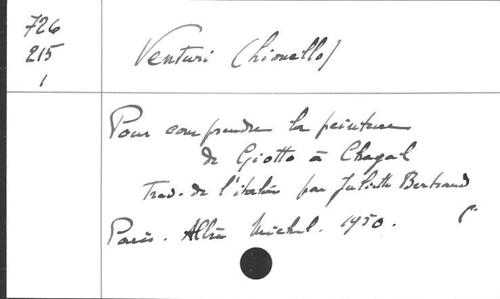 726
215
1
Venturi (Lionello)
Pour comprendre la peinture
de Giotto à Chagall
Trad. de l'italien par Juliette Bertrand
Paris. Albin Michel. 1950.